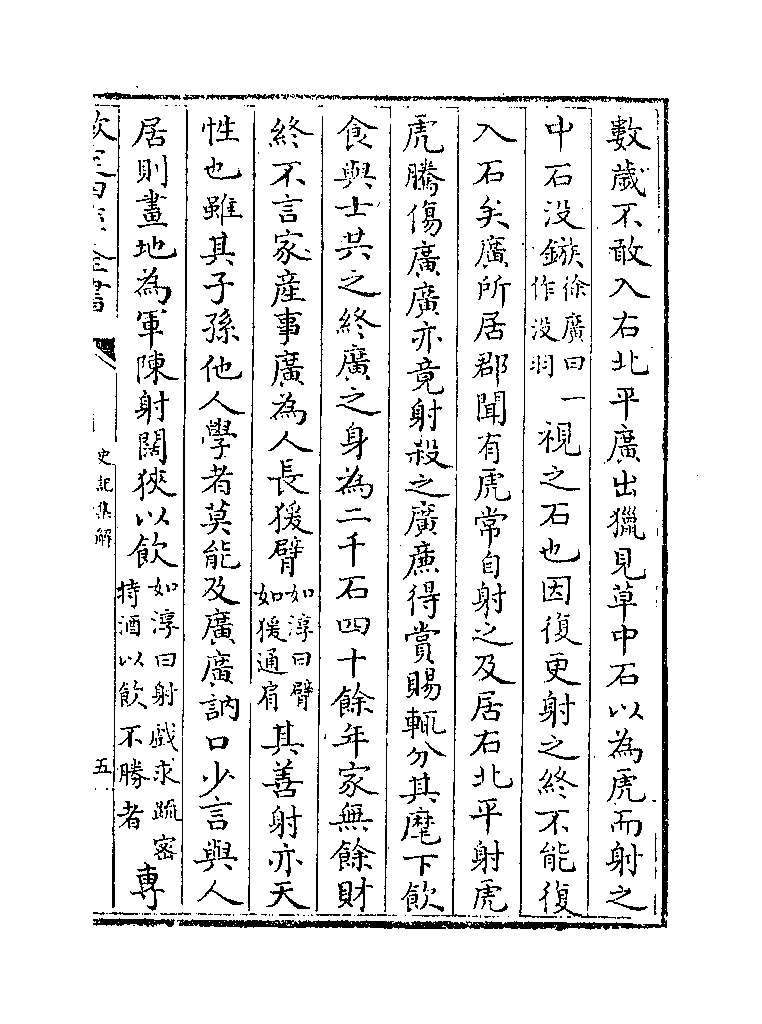 數歲不敢入右北平廣出獵見草中石以為虎而射之
中石没鏃徐廣曰一作没羽視之石也因復更射之終不能復
入石矣廣所居郡聞有虎常自射之及居右北平射虎
虎騰傷廣廣亦竟射殺之廣亷得賞賜輒分其麾下飲
食與士共之終廣之身為二千石四十餘年家無餘財
終不言家産事廣為人長猨臂如淳曰臂如猨通肩其善射亦天
性也雖其子孫他人學者莫能及廣廣訥口少言與人
居則畫地為軍陳射闊狹以飲如淳曰射戲求疏密持酒以飲不勝者專
欽定四庫全書
史記集解
五